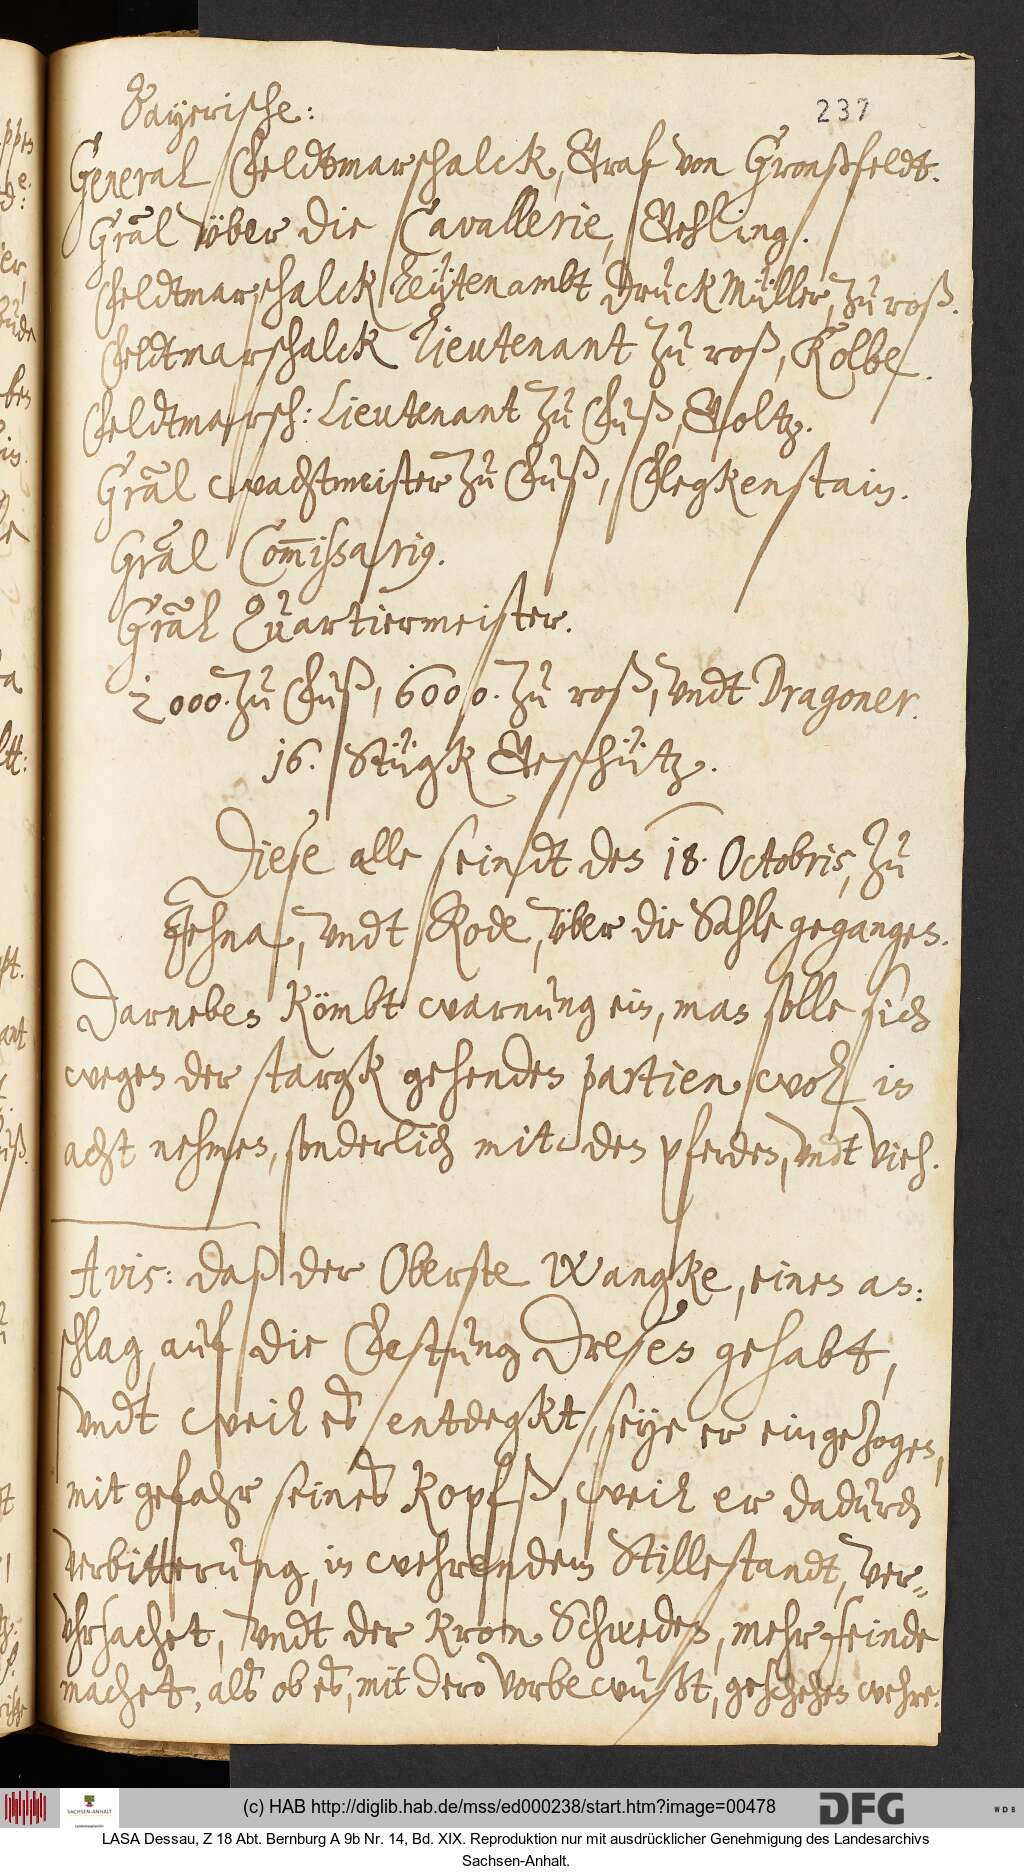 Bayerische:
237
General Feldtmarschalck, Graf von Gronßfeldt.
Gräal vber die Cavallerie, Gehling.
Feldtmarschalck Leütenambt DruckMüller, zu roß.
Feldtmarschalck Lieutenant zu roß, Kolbe.
Feldtmarsch: Lieutenant zu Fuß, Goltz.
Grâal wachtmeister zu Fuß, Flegkenstain.
Grâal Com̅issarig.
Grâal Quartiermeister.
2000. zu Fuß, 6000. zu roß, vndt Dragoner.
16. Stügk Geschütz.
Diese alle seindt des 18. Octobris, zu
Jehna, vndt Rode, vber die Sahle gegangen.
Darneben kömbt warnung ein, man solle sich
wegen der stargk gehenden partien wol in
acht nehmen, sonderlich mit den pferden, vndt vieh.
Avis: daß der Oberste Wangke, einen an:
schlag, auf die Festung Dresen gehabt,
vndt weil es entdegkt, seye er eingezogen,
mit gefahr seines Kopfß, weil er dadurch
verbitterung, in wehrendem Stillestandt, ver-
vhrsachet, vndt der Kron Schweden, mehr feinde
machet, als ob es, mit dero vorbewußt, geschehen wehre.
(c) HAB http://diglib.hab.de/mss/ed000238/start.htm?image=00478
SACHSEN-ANHALT
DFG
WDB
LASA Dessau, Z 18 Abt. Bernburg A 9b Nr. 14, Bd. XIX. Reproduktion nur mit ausdrücklicher Genehmigung des Landesarchivs
Sachsen-Anhalt.